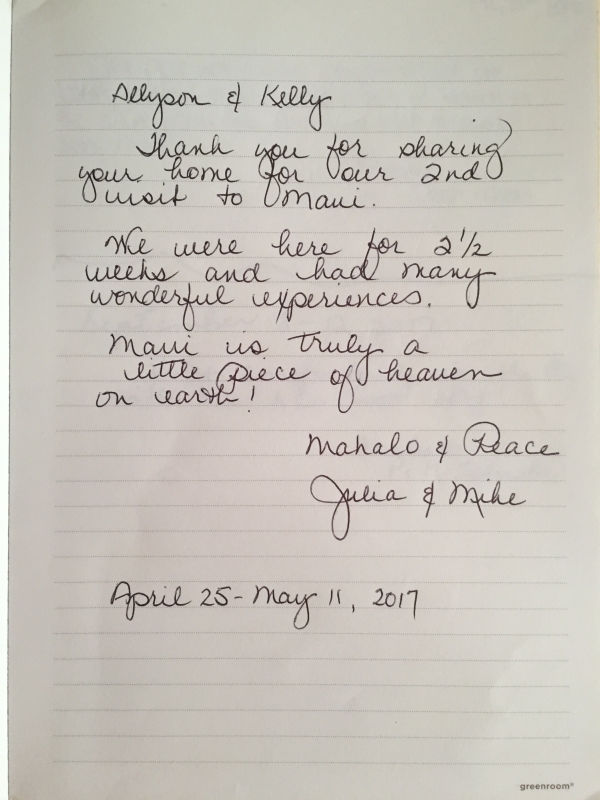 Allyson & Kelly
Thank you for sharing
your home for our 2nd
visit to Maui.
We were here for 2 1/2
weeks and had many
wonderful experiences.
Maui is truly a
little piece of heaven
on earth!
Mahalo & Peace
Julia & Mike
April 25 - May 11, 2017
greenroom®